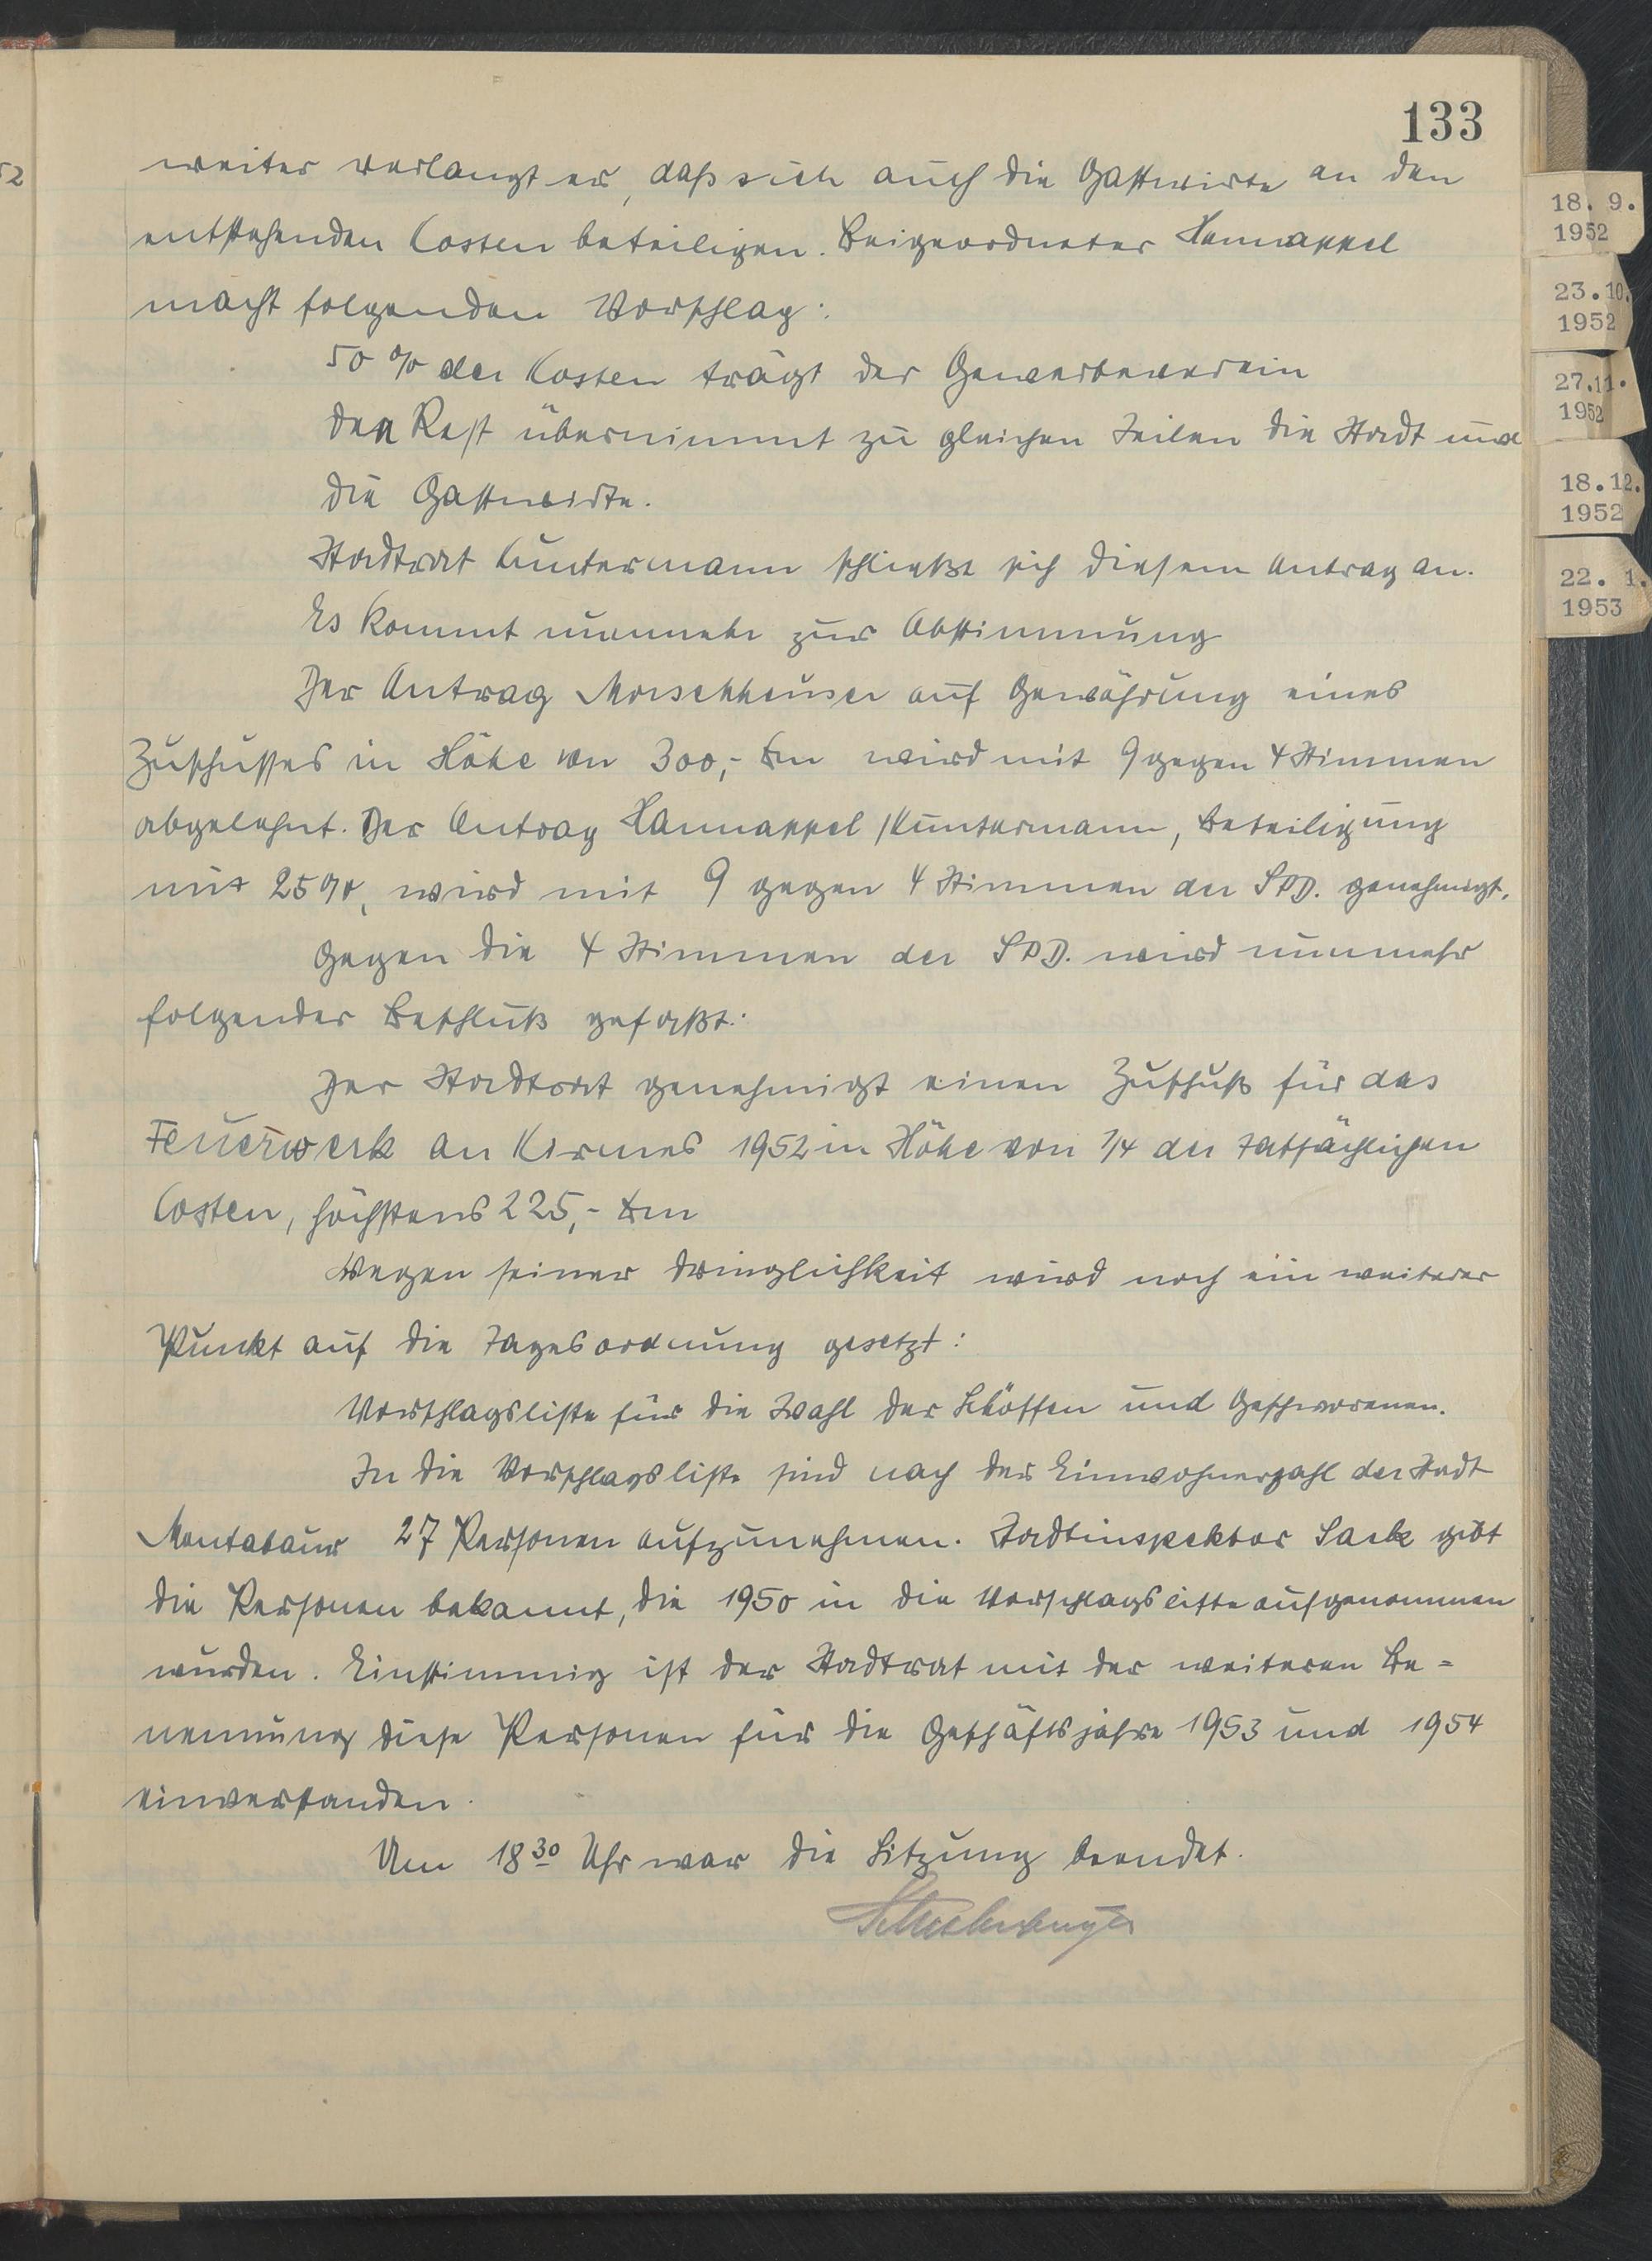 133
weiter verlangt er, daß sich auch die Gastwirte an den
entstehenden Kosten beteiligen. Beigeordneter Hannappel
macht folgenden Vorschlag:
50 % der Kosten trägt der Gewerbeverein
den Rest übernimmt zu gleichen Teilen die Stadt und
die Gastwirte.
Stadtrat Kuntermann schließt sich diesem Antrag an.
Es kommt nunmehr zur Abstimmung
Der Antrag Morschhäuser auf Gewährung eines
Zuschusses in Höhe von 300,- Dm wird mit 9 gegen 4 Stimmen
abgelehnt. Der Antrag Hannappel/Kuntermann, Beteiligung
mit 25 %, wird mit 9 gegen 4 Stimmen der SPD. genehmigt.
Gegen die 4 Stimmen der SPD. wird nunmehr
folgender Beschluß gefaßt:
Der Stadtrat genehmigt einen Zuschuß für das
Feuerwerk an Kirmes 1952 in Höhe von 1/4 der tatsächlichen
Kosten, höchstens 225,- Dm
Wegen seiner Dringlichkeit wird noch ein weiterer
Punkt auf die Tagesordnung gesetzt:
Vorschlagsliste für die Wahl der Schöffen und Geschworenen.
In die Vorschlagsliste sind nach der Einwohnerzahl der Stadt
Montabaur 27 Personen aufzunehmen. Stadtinspektor Sack gibt
die Personen bekannt, die 1950 in die Vorschlagsliste aufgenommen
wurden. Einstimmig ist der Stadtrat mit der weiteren Be=
nennung diese Personen für die Geschäftsjahre 1953 und 1954
einverstanden.
Um 18 30 Uhr war die Sitzung beendet.
18. 9.
1952
23.10.
1952
27.11.
1952
18.12.
1952
22. 1.
1953